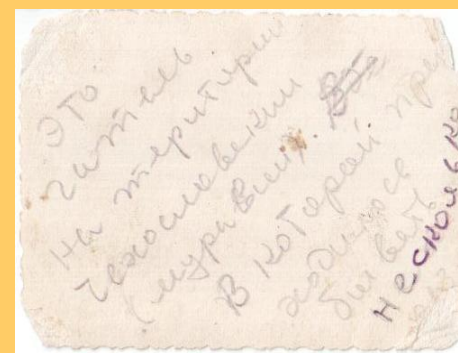 Это
гатель
на территории
Чехословекии
(муравии). Вто
в которай при
ходилось
бывать
несколько
раз